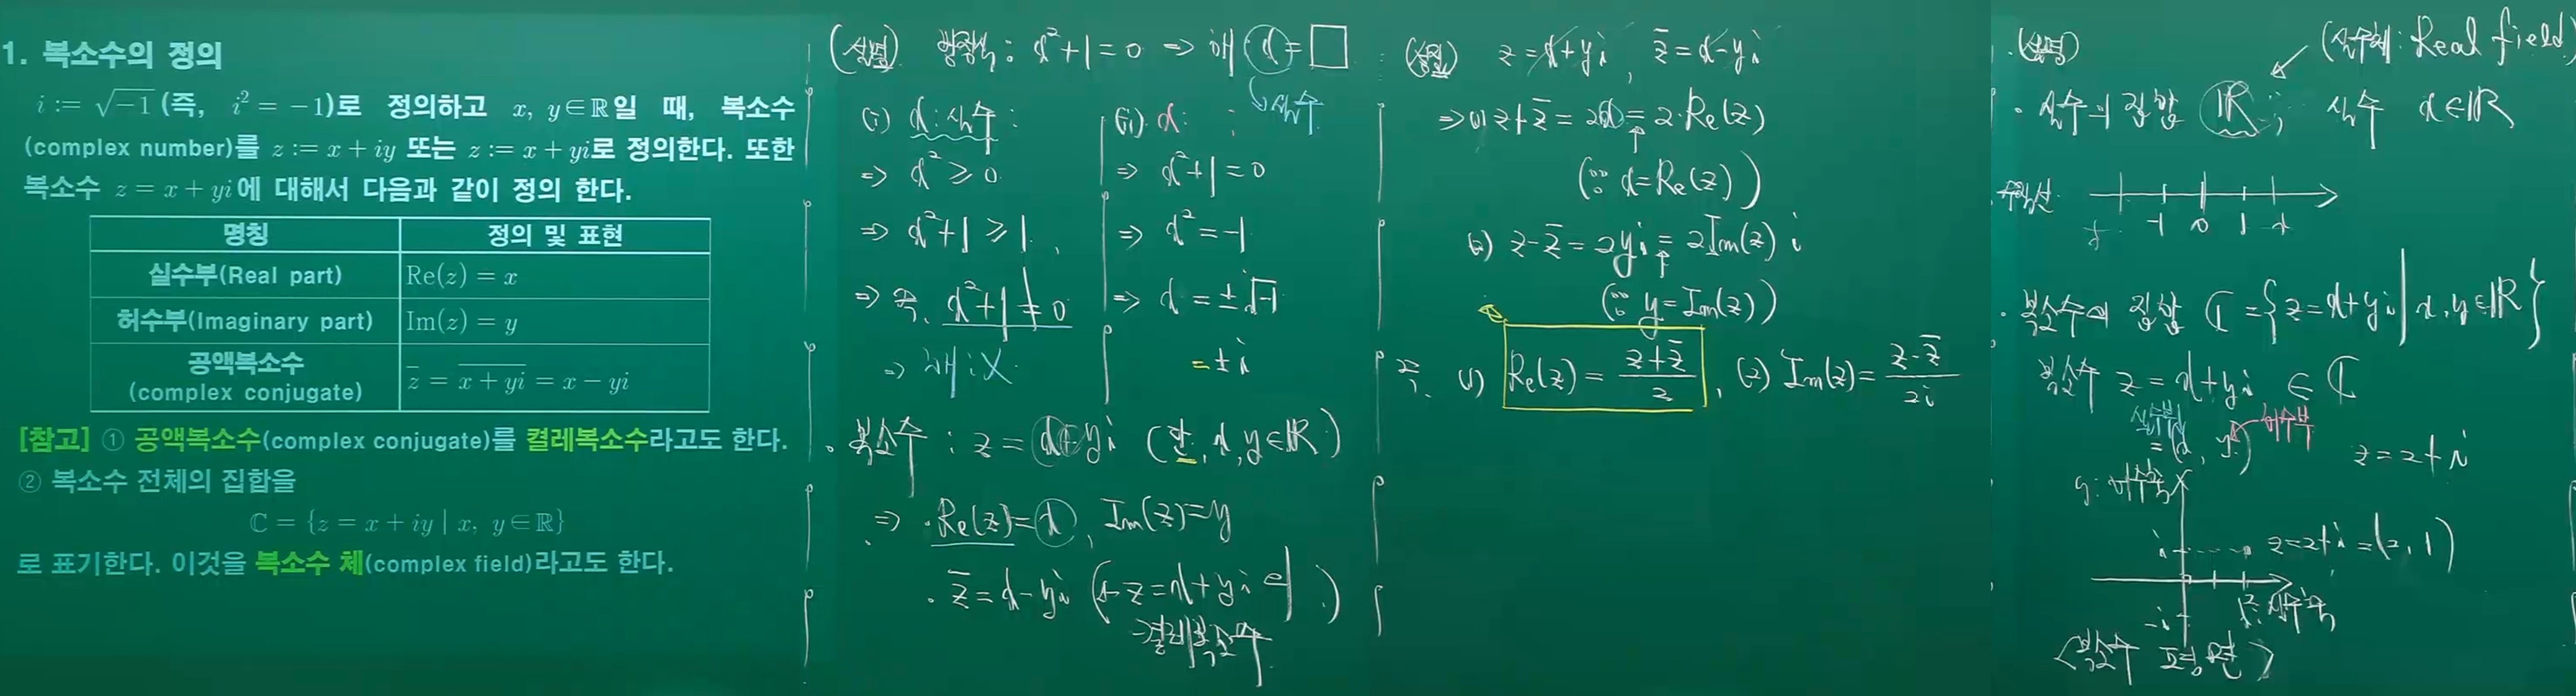 1. 복소수의 정의
i := √-1 (즉, i² = -1)로 정의하고 x, y∈ℝ일 때, 복소수
(complex number)를 z := x + iy 또는 z := x + yi로 정의한다. 또한
복소수 z = x + yi에 대해서 다음과 같이 정의 한다.
명칭 정의 및 표현
실수부(Real part) Re(z) = x
허수부(Imaginary part) Im(z) = y
공액복소수
(complex conjugate) z̅ = \overline{x + yi} = x - yi
[참고] ① 공액복소수(complex conjugate)를 켤레복소수라고도 한다.
② 복소수 전체의 집합을
ℂ = {z = x + iy | x, y∈ℝ}
로 표기한다. 이것을 복소수 체(complex field)라고도 한다.
(설명) 방정식 : x²+1=0 ⇒ 해 x=□
실수
(i) x : 실수 :
⇒ x² ≥ 0
⇒ x²+1 ≥ 1,
⇒ 즉, x²+1 ≠ 0
⇒ 해 : X
(ii) x : ;
⇒ x²+1=0
⇒ x²=-1
⇒ x=±√-1
=±i
· 복소수 : z = x+yi (단, x, y∈ℝ)
⇒ · Re(z)=x, Im(z)=y
· z̅=x-yi (← z=x+yi의 )
⇒켤레복소수
(설명) z=x+yi, z̅=x-yi
⇒(1) z+z̅=2x=2·Re(z)
(∵ x=Re(z))
(2) z-z̅=2yi=2Im(z)i
(∵ y=Im(z))
즉, (1) Re(z)=(z+z̅)/2, (2) Im(z)=(z-z̅)/2i
· (설명) (실수체: Real field)
· 실수의 집합 ℝ ; 실수 x∈ℝ
수직선
-1 0 1
· 복소수의 집합 ℂ={z=x+yi | x, y∈ℝ}
복소수 z=x+yi ∈ℂ
실수부 허수부
=(x, y)
z=2+i
y: 허수축
i z=2+i=(2, 1)
2 x: 실수축
-i
<복소수 평면>